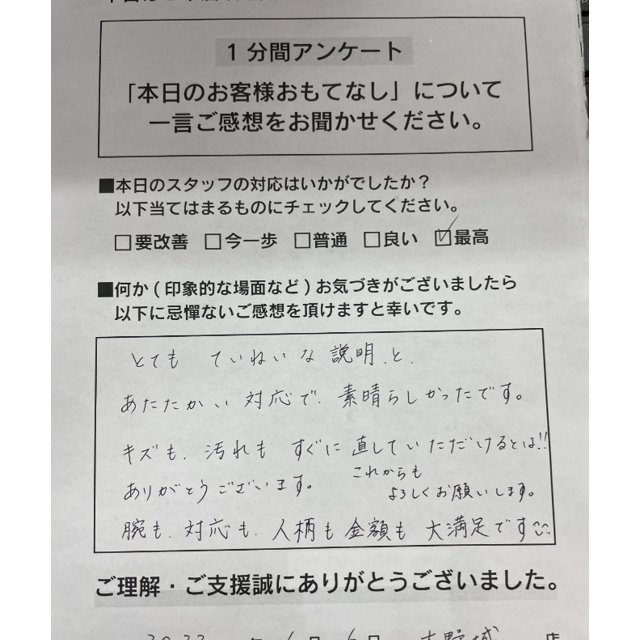 1分間アンケート
「本日のお客様おもてなし」について
一言ご感想をお聞かせください。
■本日のスタッフの対応はいかがでしたか?
以下当てはまるものにチェックしてください。
□要改善 □今一歩 □普通 □良い ☑最高
■何か(印象的な場面など)お気づきがございましたら
以下に忌憚ないご感想を頂けますと幸いです。
とても ていねいな 説明と、
あたたかい 対応で、素晴らしかったです。
キズも、汚れも すぐに 直していただけるとは!!
ありがとうございます。
これからも
よろしくお願いします。
腕も、対応も、人柄も 金額も 大満足です
ご理解・ご支援誠にありがとうございました。